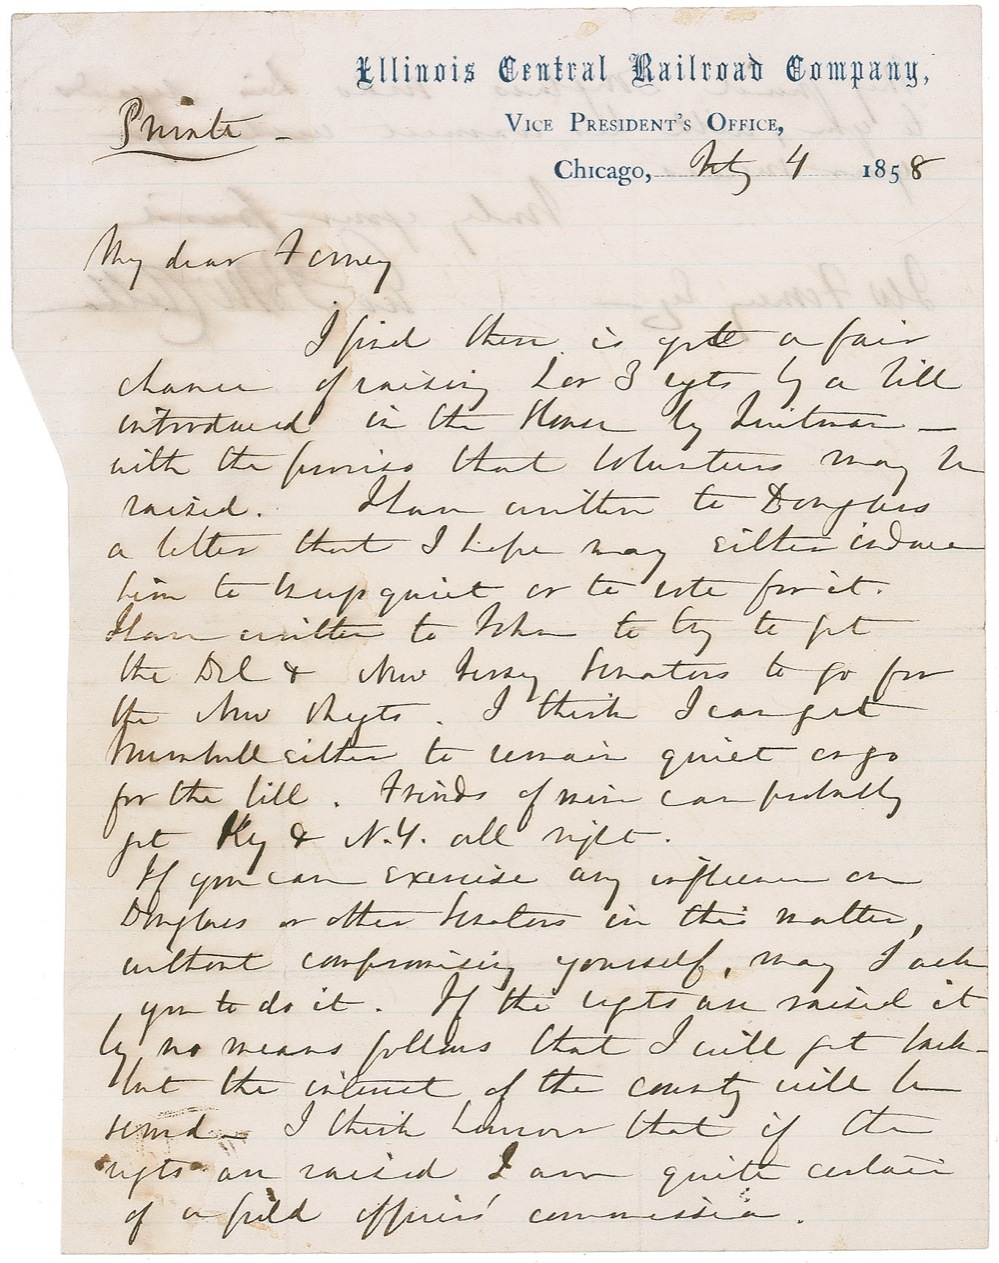 Illinois Central Railroad Company,
Vice President's Office,
Private –
Chicago, July 4 1858
My dear Forney
I find there is yet a fair
chance of raising 2 or 3 regts by a bill
introduced in the House by Quitman –
with the proviso that Volunteers may be
raised. I have written to Douglass
a letter that I hope may either induce
him to keep quiet or to vote for it.
I have written to to try to get
the Del & New Jersey Senators to go for
the New Regts. I think I can get
Trumbull either to remain quiet or go
for the bill. Friends of mine can probably
get Ky & N.Y. all right.
If you can exercise any influence on
Douglass or other Senators in this matter,
without compromising yourself, may I ask
you to do it. If the regts are raised it
by no means follows that I will get back –
but the interest of the country will be
served – I think however that if the
regts are raised I am quite certain
of a field officers' commission.